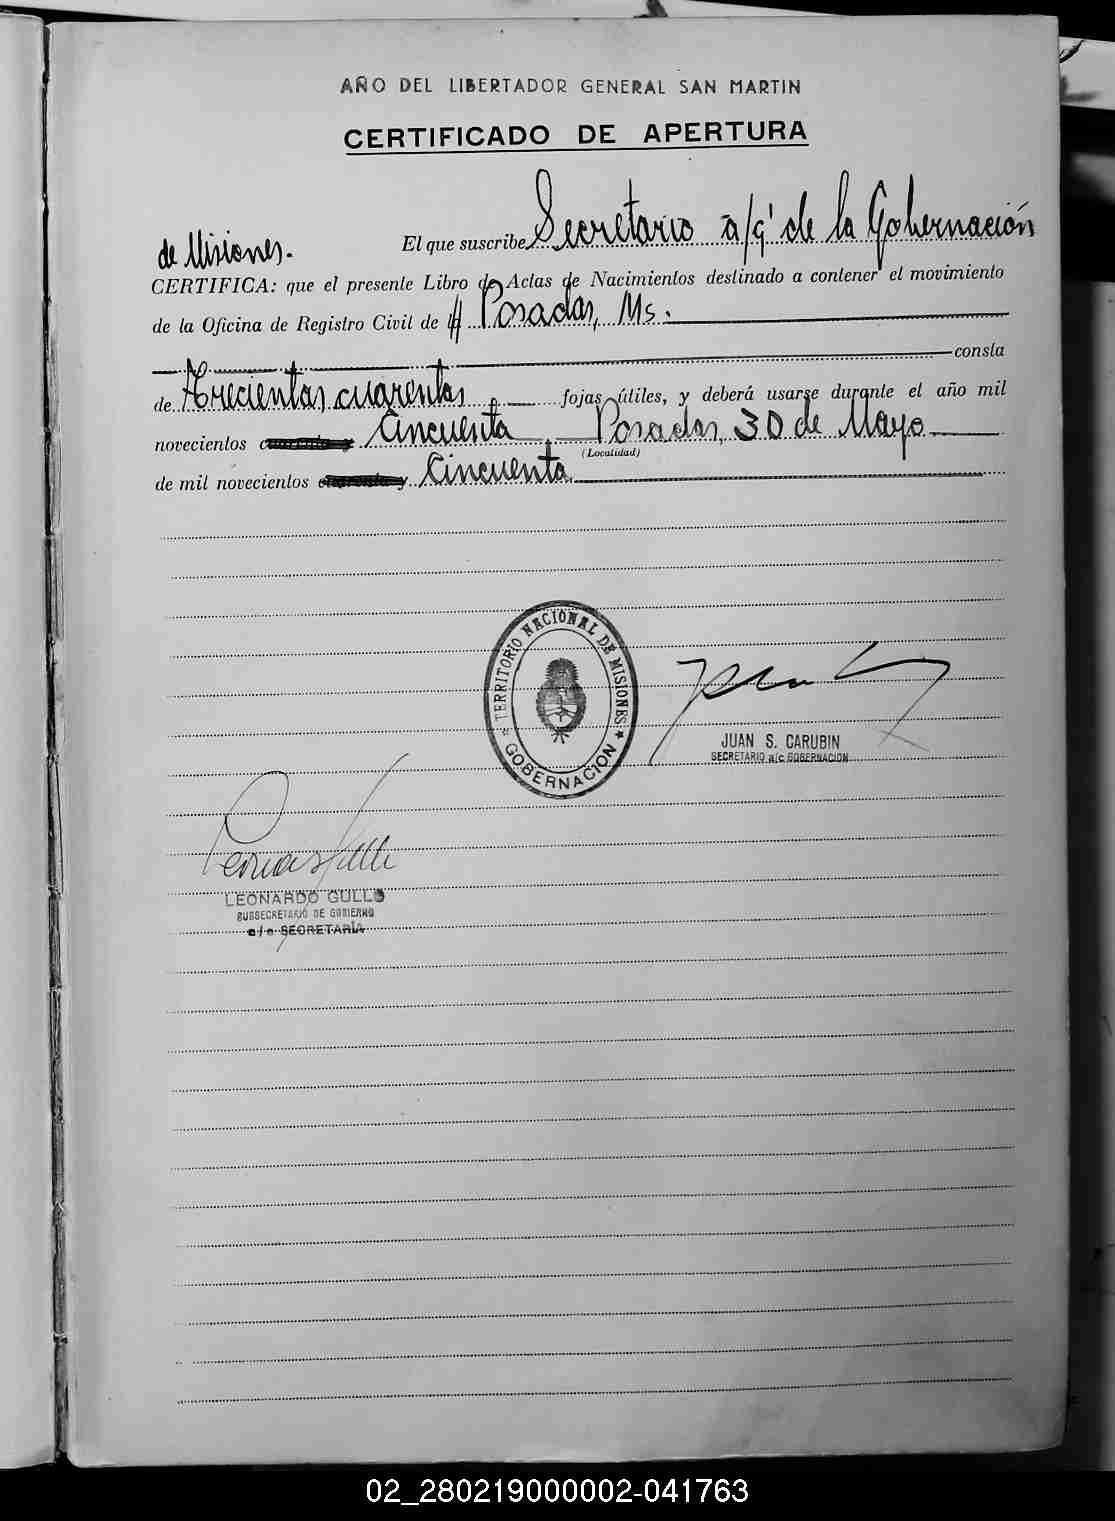 AÑO DEL LIBERTADOR GENERAL SAN MARTIN
CERTIFICADO DE APERTURA
El que suscribe Secretario a/c' de la Gobernación
de Misiones.
CERTIFICA: que el presente Libro de Actas de Nacimientos destinado a contener el movimiento
de la Oficina de Registro Civil de Posadas, Ms.
consta
de Trecientas cuarentas fojas útiles, y deberá usarse durante el año mil
novecientos cuarenta y Cincuenta. Posadas, 30 de Mayo
(Localidad)
de mil novecientos cuarenta y Cincuenta.
TERRITORIO NACIONAL DE MISIONES
GOBERNACION
JUAN S. CARUBIN
SECRETARIO a/c GOBERNACION
LEONARDO GULLO
SUBSECRETARIO DE GOBIERNO
a/c SECRETARÍA
02_280219000002-041763